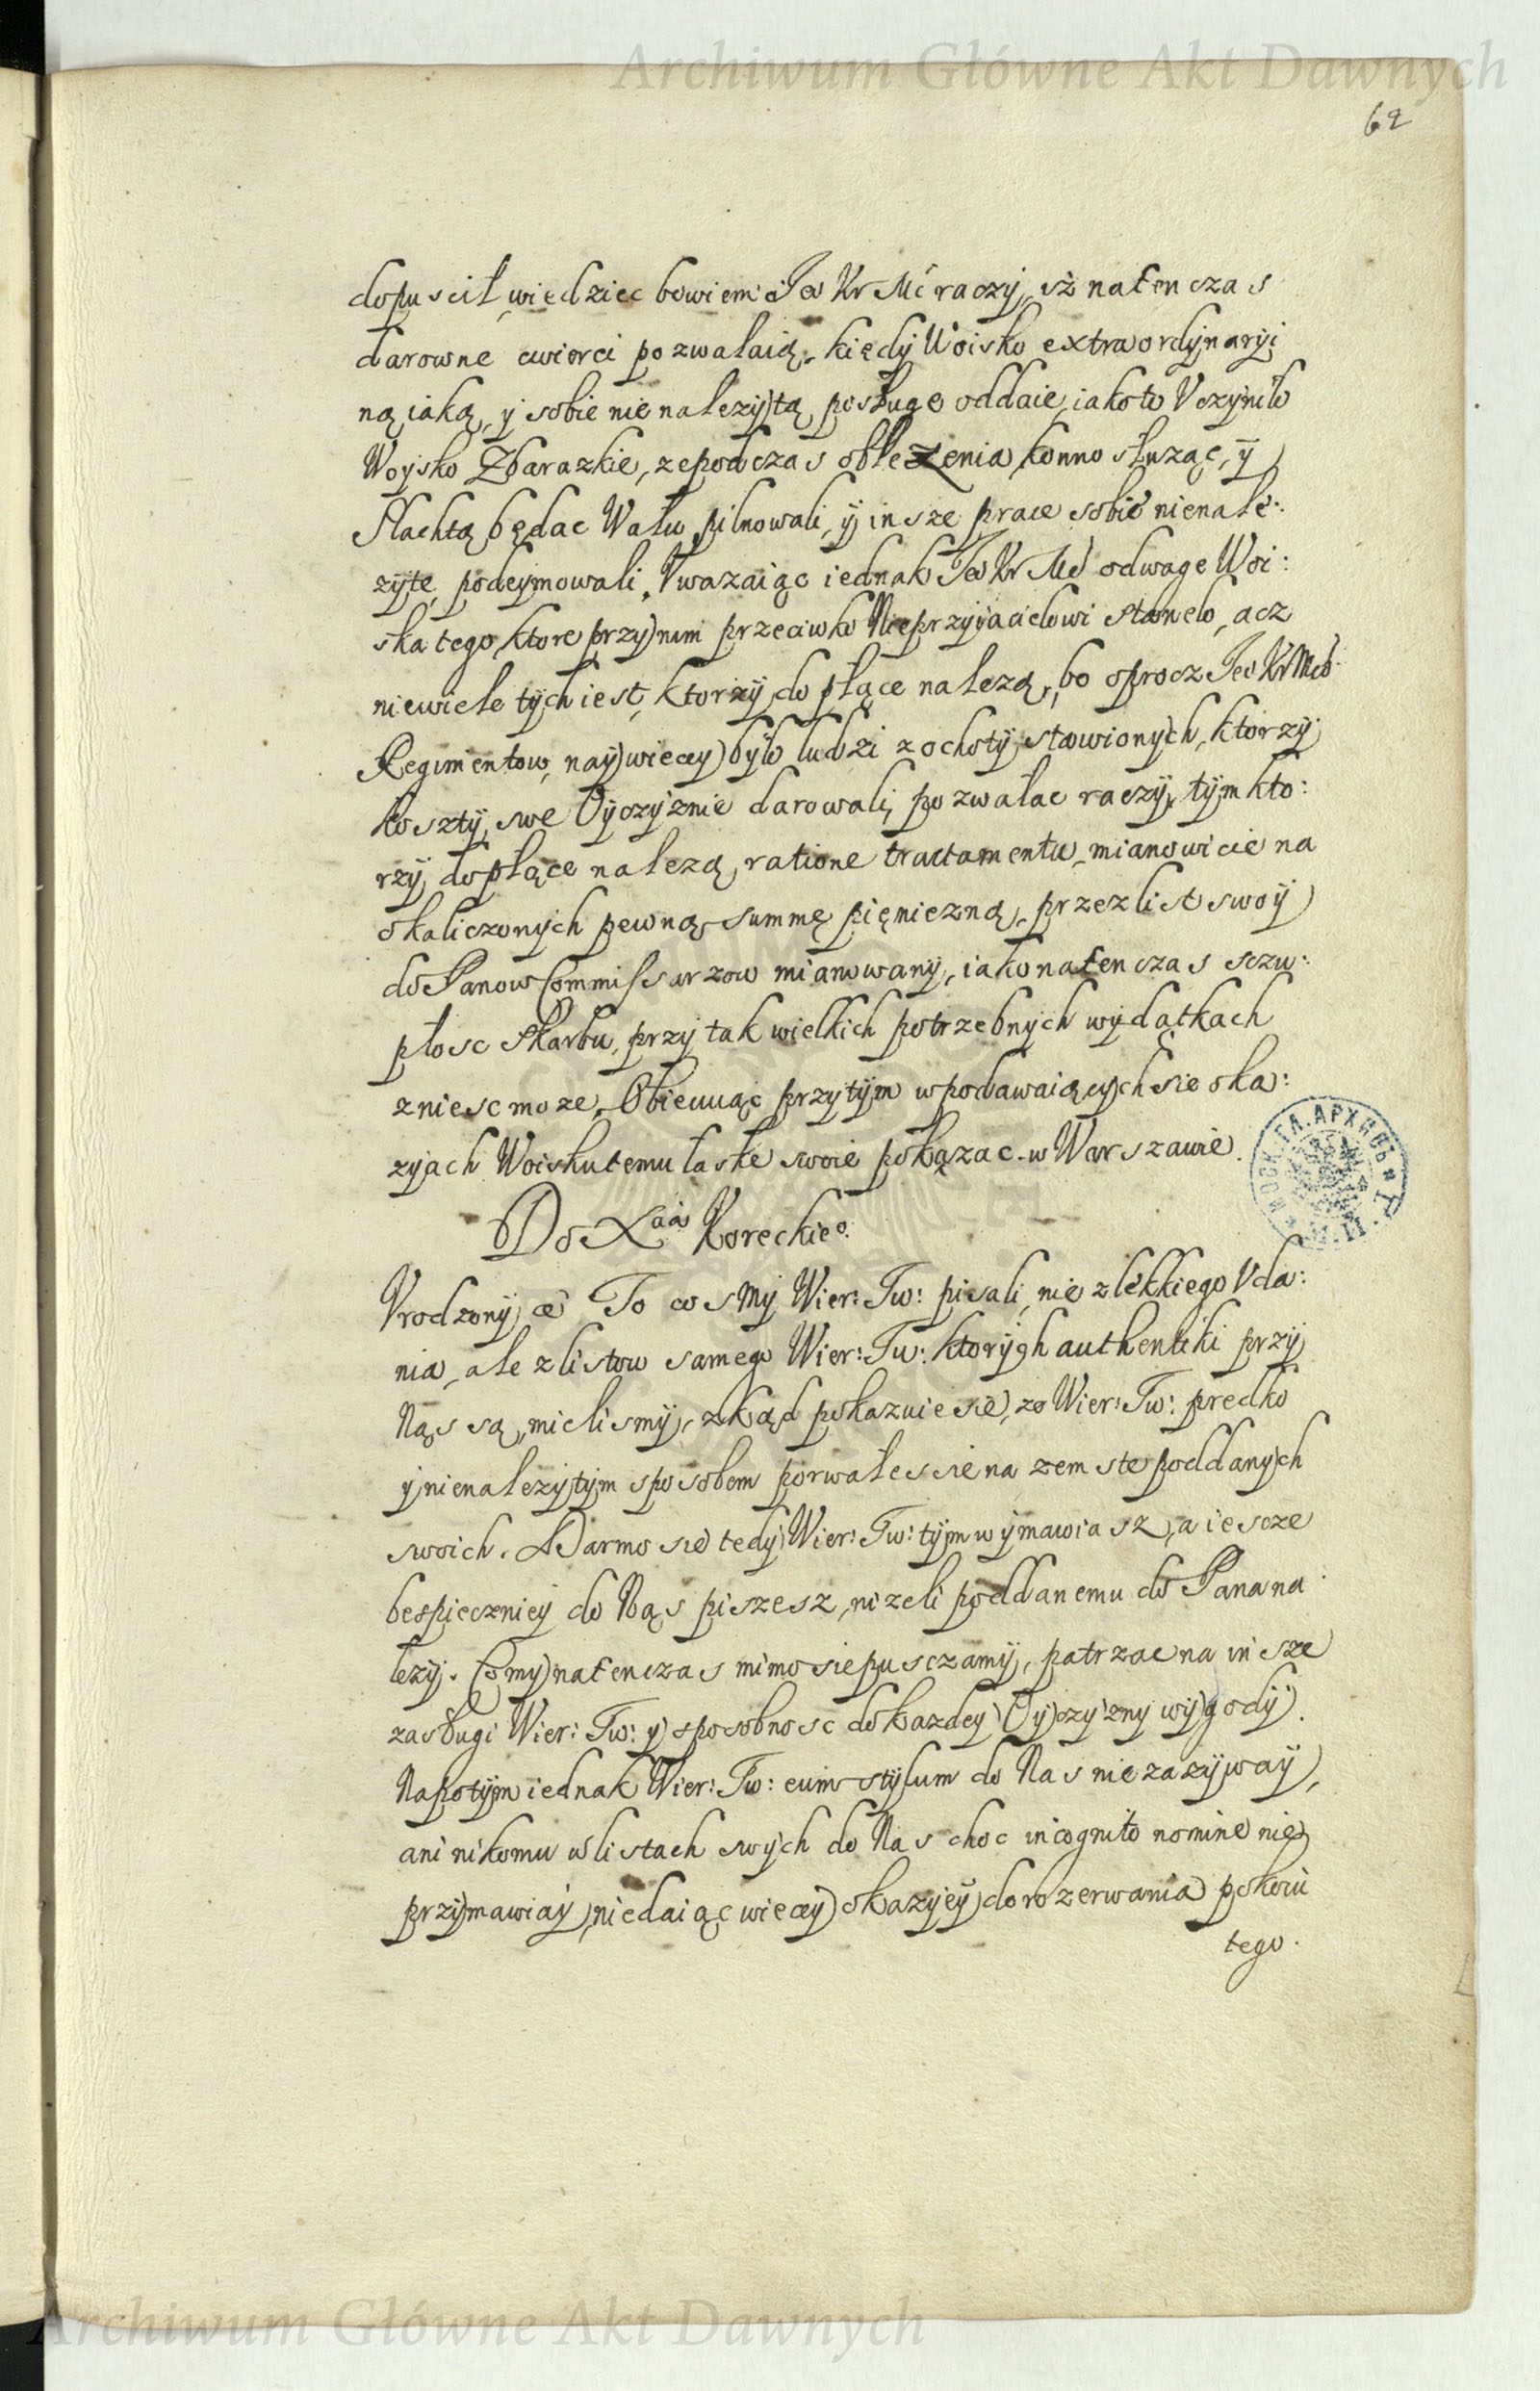 Archiwum Główne Akt Dawnych
62
dopuscił, wiedziec bowiem Jeo Kr Mć raczy, iż natenczas
darowne cwierci pozwalaią, kiędy Woisko extraordynaryi
ną iaką, y sobie nienalezytą posługe oddaie, iakoto Vczyniło
Woysko Zbarazkie, ze podczas oblezenia konno słuząc, ÿ
Slachtą będac Wału pilnowali, ÿ insze prace sobie nienale:
zyte podeymowali. Vwazaiąc iednak Jeo Kr Mć odwage Woi:
ska tego, ktore przy nim przeciwko Nieprzyiacielowi staneło, acz
niewiele tych iest, ktorzy do płące nalezą, bo oprocz Jeo Kr Mći
Regimentow, naywiecey było ludzi z ochoty stawionych, ktorzy
koszty swe Oyczyznie darowali, pozwalac raczy, tym kto:
rzy do płące nalezą, ratione tractamentu, mianowicie na
okaliczonych pewną summę pięniezną, przez list swoy
do Panow Commissarzow mianowany, iako natenczas sczu:
płosc skarbu, przy tak wielkich potrzebnych wydątkach
zniesc moze. Obiecuiąc przytym w podawaiących sie oka:
zyach Woisku temu łaske swoie pokązac w Warszawie.
МОСК. ГЛ. АРХИВЪ
Do Xcia Koreckieo.
Vrodzony etc. To cosmy Wier: Tw: pisali, nie z lekkiego Vda:
nia, ale z listow samego Wier: Tw: ktorych authentiki przy
Nąs są, mielismy, zkąd pokazuie sie, ze Wier: Tw: predko
y nienalezytym sposobem porwałes sie na zemste poddanych
swoich. Darmo sie tedy Wier: Tw: tym wymawiasz, a iescze
bespieczniey do Nąs piszesz, nizeli poddanemu do Pana na
lezy. Co my natenczas mimo sie pusczamy, patrzac na insze
zasługi Wier: Tw: y sposobnosc do kazdey Oyczyzny wygody.
Napotym iednak Wier: Tw: eum stylum do Nas nie zazyway,
ani nikomu w listach swych do Nas choc incognito nomine nie
przymawiay, niedaiąc wiecey okazyey do rozerwania pokoiu
tego.
Archiwum Główne Akt Dawnych